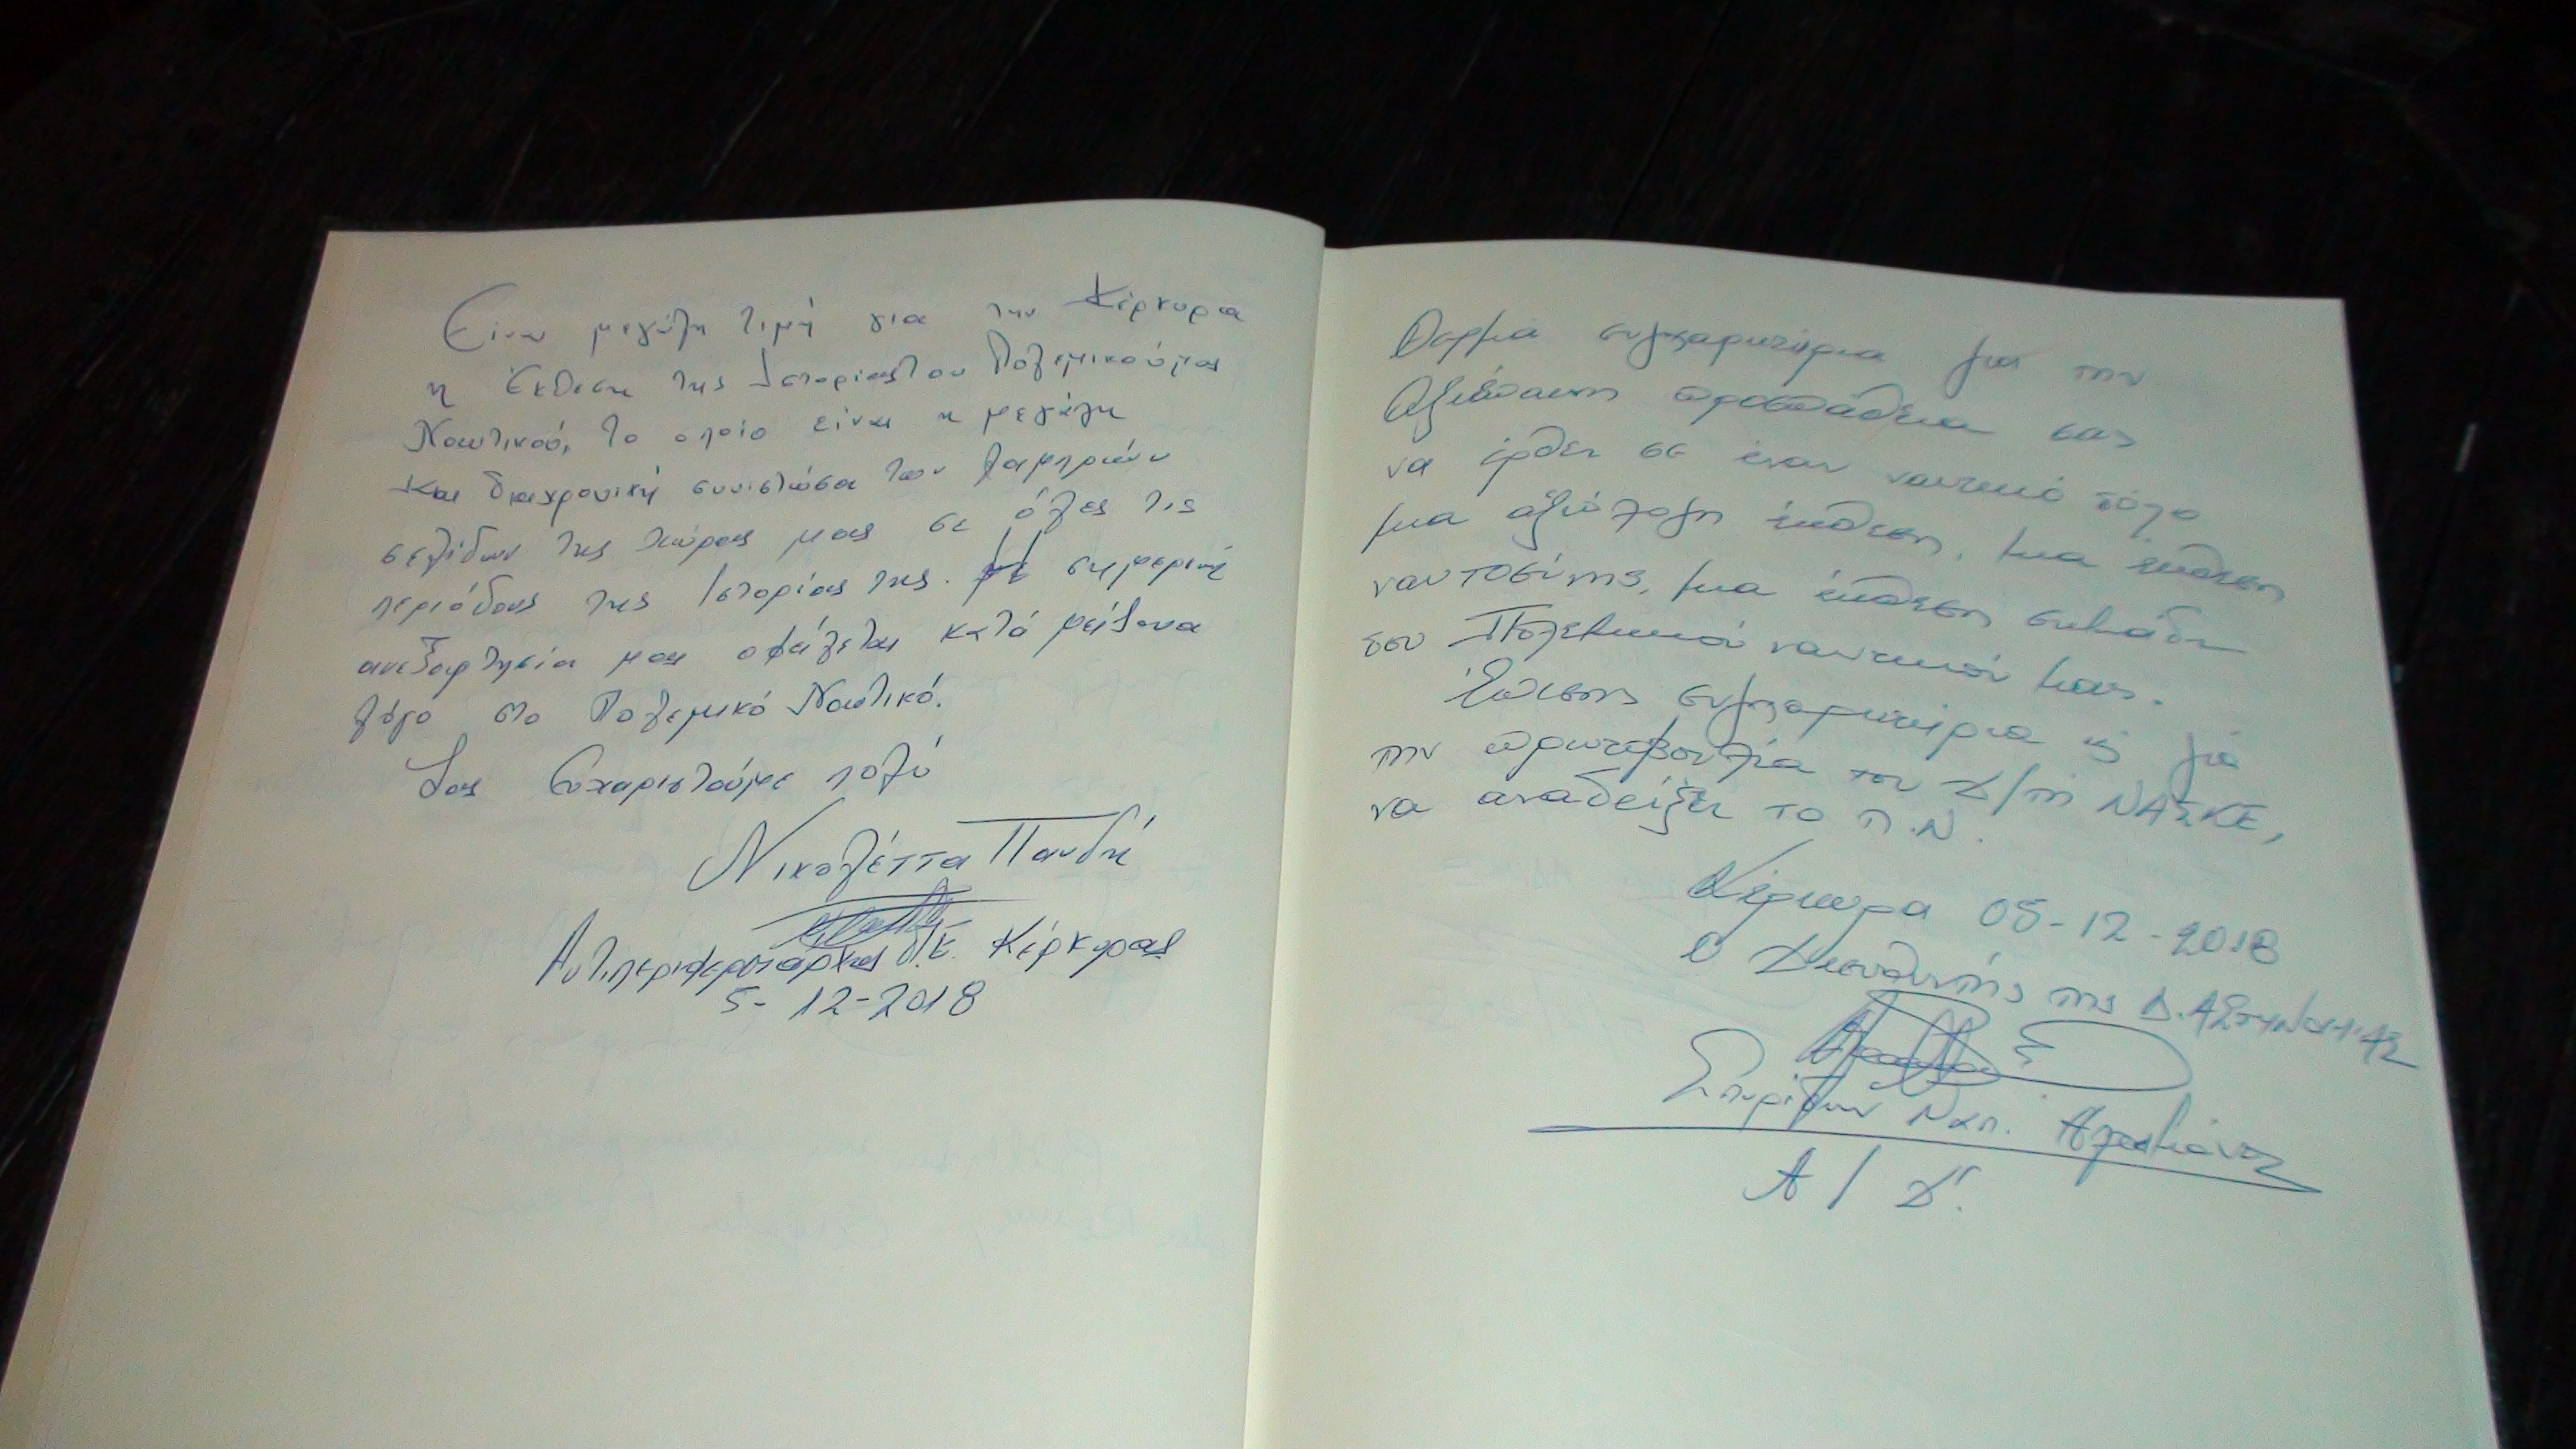 Είναι μεγάλη τιμή για την Κέρκυρα
η Έκθεση της Ιστορίας του Πολεμικού μας
Ναυτικού, το οποίο είναι η μεγάλη
και διαχρονική συνιστώσα των λαμπρών
σελίδων της χώρας μας σε όλες τις
περιόδους της Ιστορίας της. Η σημερινή
ανεξαρτησία μας οφείλεται κατά μείζονα
λόγο στο Πολεμικό Ναυτικό.
Σας Ευχαριστούμε πολύ
Νικολέττα Πανδή
Αντιπεριφερειάρχης Π.Ε. Κέρκυρας
5-12-2018
Θερμά συγχαρητήρια για την
αξιέπαινη προσπάθεια σας
να έρθει σε έναν ναυτικό τόπο
μια αξιόλογη έκθεση, μια έκθεση
ναυτοσύνης, μια έκθεση
του Πολεμικού ναυτικού μας.
Επίσης συγχαρητήρια κ για
την πρωτοβουλία του Δ/τη ΝΑΣΚΕ,
να αναδείξει το Π.Ν.
Κέρκυρα 05-12-2018
Ο Διευθυντής της Δ. ΑΣΤΥΝΟΜΙΑΣ
Σπυρίδων
Α/Δ'.